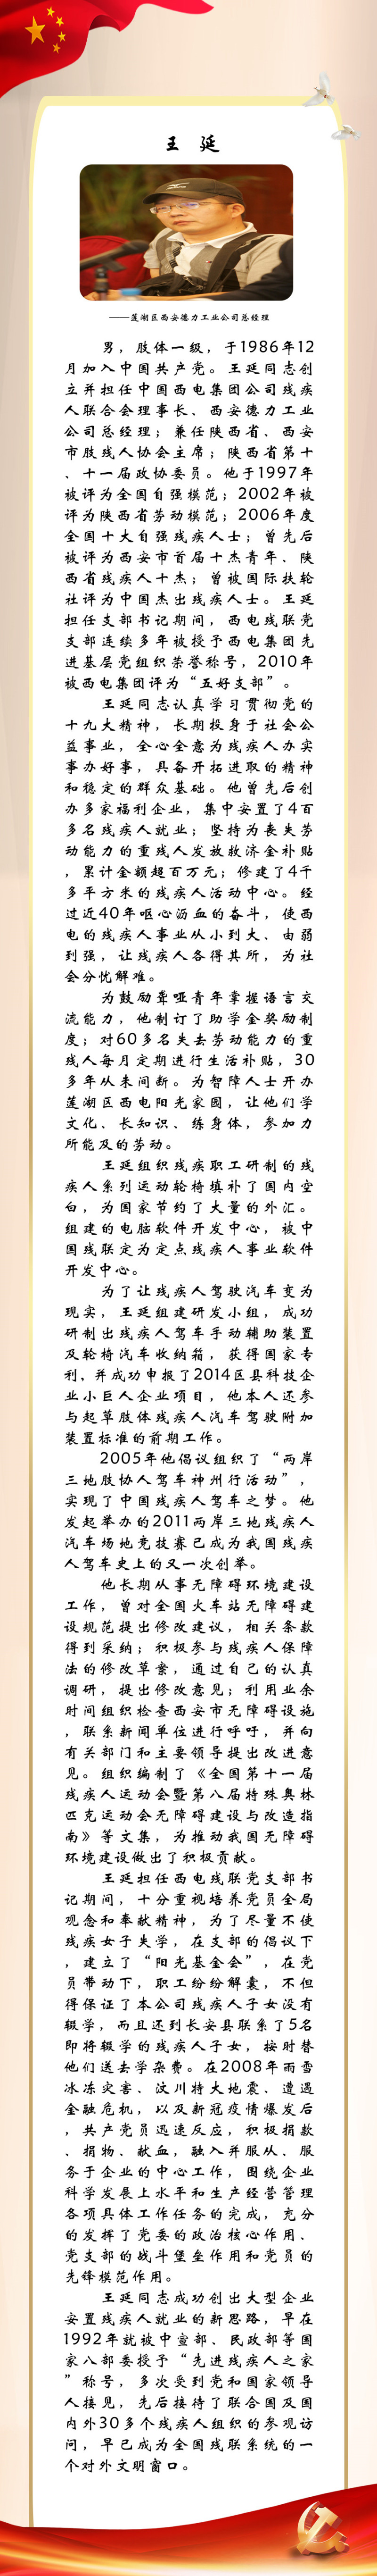 王 延
——莲湖区西安德力工业公司总经理
男，肢体一级，于1986年12
月加入中国共产党。王延同志创
立并担任中国西电集团公司残疾
人联合会理事长、西安德力工业
公司总经理；兼任陕西省、西安
市肢残人协会主席；陕西省第十
、十一届政协委员。他于1997年
被评为全国自强模范；2002年被
评为陕西省劳动模范；2006年度
全国十大自强残疾人士；曾先后
被评为西安市首届十杰青年、陕
西省残疾人十杰；曾被国际扶轮
社评为中国杰出残疾人士。王延
担任支部书记期间，西电残联党
支部连续多年被授予西电集团先
进基层党组织荣誉称号，2010年
被西电集团评为“五好支部”。
王延同志认真学习贯彻党的
十九大精神，长期投身于社会公
益事业，全心全意为残疾人办实
事办好事，具备开拓进取的精神
和稳定的群众基础。他曾先后创
办多家福利企业，集中安置了4百
多名残疾人就业；坚持为丧失劳
动能力的重残人发放救济金补贴
，累计金额超百万元；修建了4千
多平方米的残疾人活动中心。经
过近40年呕心沥血的奋斗，使西
电的残疾人事业从小到大、由弱
到强，让残疾人各得其所，为社
会分忧解难。
为鼓励聋哑青年掌握语言交
流能力，他制订了助学金奖励制
度；对60多名失去劳动能力的重
残人每月定期进行生活补贴，30
多年从未间断。为智障人士开办
莲湖区西电阳光家园，让他们学
文化、长知识、练身体，参加力
所能及的劳动。
王延组织残疾职工研制的残
疾人系列运动轮椅填补了国内空
白，为国家节约了大量的外汇。
组建的电脑软件开发中心，被中
国残联定为定点残疾人事业软件
开发中心。
为了让残疾人驾驶汽车变为
现实，王延组建研发小组，成功
研制出残疾人驾车手动辅助装置
及轮椅汽车收纳箱，获得国家专
利、并成功申报了2014区县科技企
业小巨人企业项目，他本人还参
与起草肢体残疾人汽车驾驶附加
装置标准的前期工作。
2005年他倡议组织了“两岸
三地肢协人驾车神州行活动”，
实现了中国残疾人驾车之梦。他
发起举办的2011两岸三地残疾人
汽车场地竞技赛已成为我国残疾
人驾车史上的又一次创举。
他长期从事无障碍环境建设
工作，曾对全国火车站无障碍建
设规范提出修改建议，相关条款
得到采纳；积极参与残疾人保障
法的修改草案，通过自己的认真
调研，提出修改意见；利用业余
时间组织检查西安市无障碍设施
，联系新闻单位进行呼吁，并向
有关部门和主要领导提出改进意
见。组织编制了《全国第十一届
残疾人运动会暨第八届特殊奥林
匹克运动会无障碍建设与改造指
南》等文集，为推动我国无障碍
环境建设做出了积极贡献。
王延担任西电残联党支部书
记期间，十分重视培养党员全局
观念和奉献精神，为了尽量不使
残疾女子失学，在支部的倡议下
，建立了“阳光基金会”，在党
员带动下，职工纷纷解囊，不但
得保证了本公司残疾人子女没有
辍学，而且还到长安县联系了5名
即将辍学的残疾人子女，按时替
他们送去学杂费。在2008年雨雪
冰冻灾害、汶川特大地震、遭遇
金融危机，以及新冠疫情爆发后
，共产党员迅速反应，积极捐款
、捐物、献血，融入并服从、服
务于企业的中心工作，围绕企业
科学发展上水平和生产经营管理
各项具体工作任务的完成，充分
的发挥了党委的政治核心作用、
党支部的战斗堡垒作用和党员的
先锋模范作用。
王延同志成功创出大型企业
安置残疾人就业的新思路，早在
1992年就被中宣部、民政部等国
家八部委授予“先进残疾人之家
”称号，多次受到党和国家领导
人接见，先后接待了联合国及国
内外30多个残疾人组织的参观访
问，早已成为全国残联系统的一
个对外文明窗口。